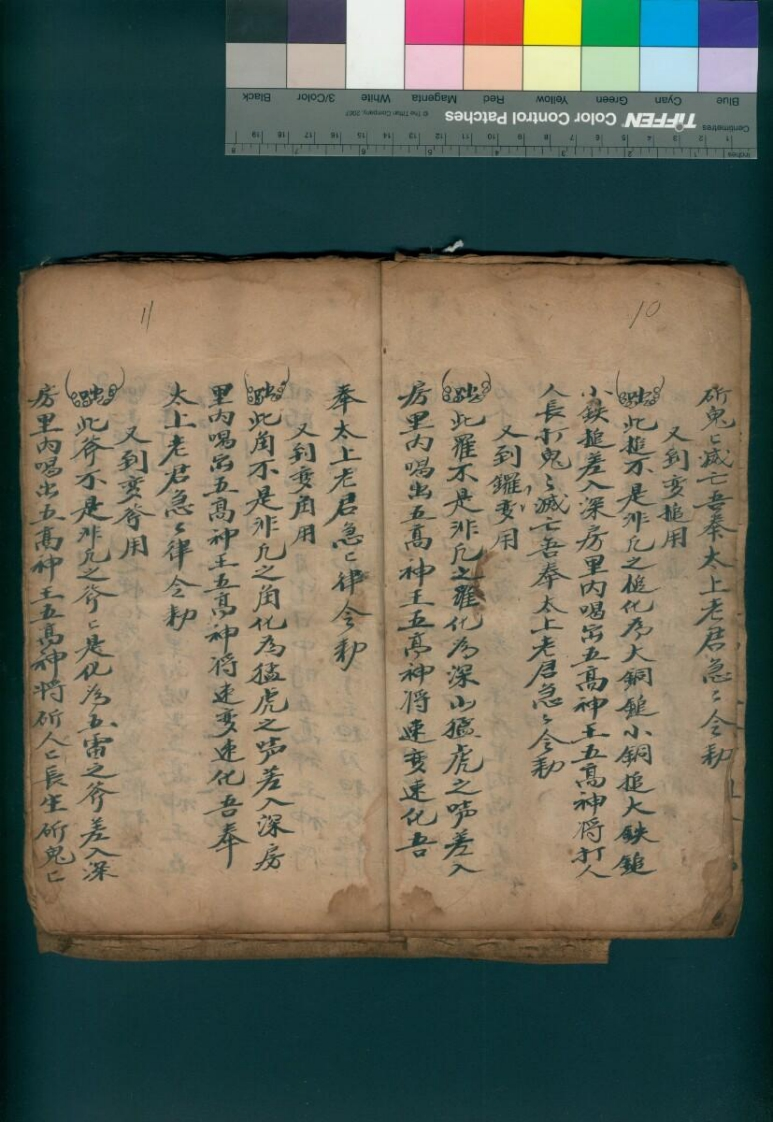 Blue Cyan Green Yellow Red Magenta White 3/Color Black
TIFFEN Color Control Patches
© The Tiffen Company, 2007
Centimetres
Inches
10
斫鬼〻滅亡吾奉太上老君急〻令勅
又到変槌用
此槌不是非凡之槌化為大銅鎚小銅槌大鉄鎚
小鉄槌差入深房里内喝出五高神王五高神将打人
人長打鬼〻滅亡吾奉太上老君急〻令勅
又到鑼変用
此羅不是非凡之羅化為深山猛虎之啼差入
房里内喝出五高神王五高神将速変速化吾
11
奉太上老君急〻律令勅
又到変角用
此角不是非凡之角化為猛虎之啼差入深房
里内喝出五高神王五高神将速変速化吾奉
太上老君急〻律令勅
又到変斧用
此斧不是非凡之斧〻是化為五雷之斧差入深
房里内喝出五高神王五高神将斫人〻長生斫鬼〻